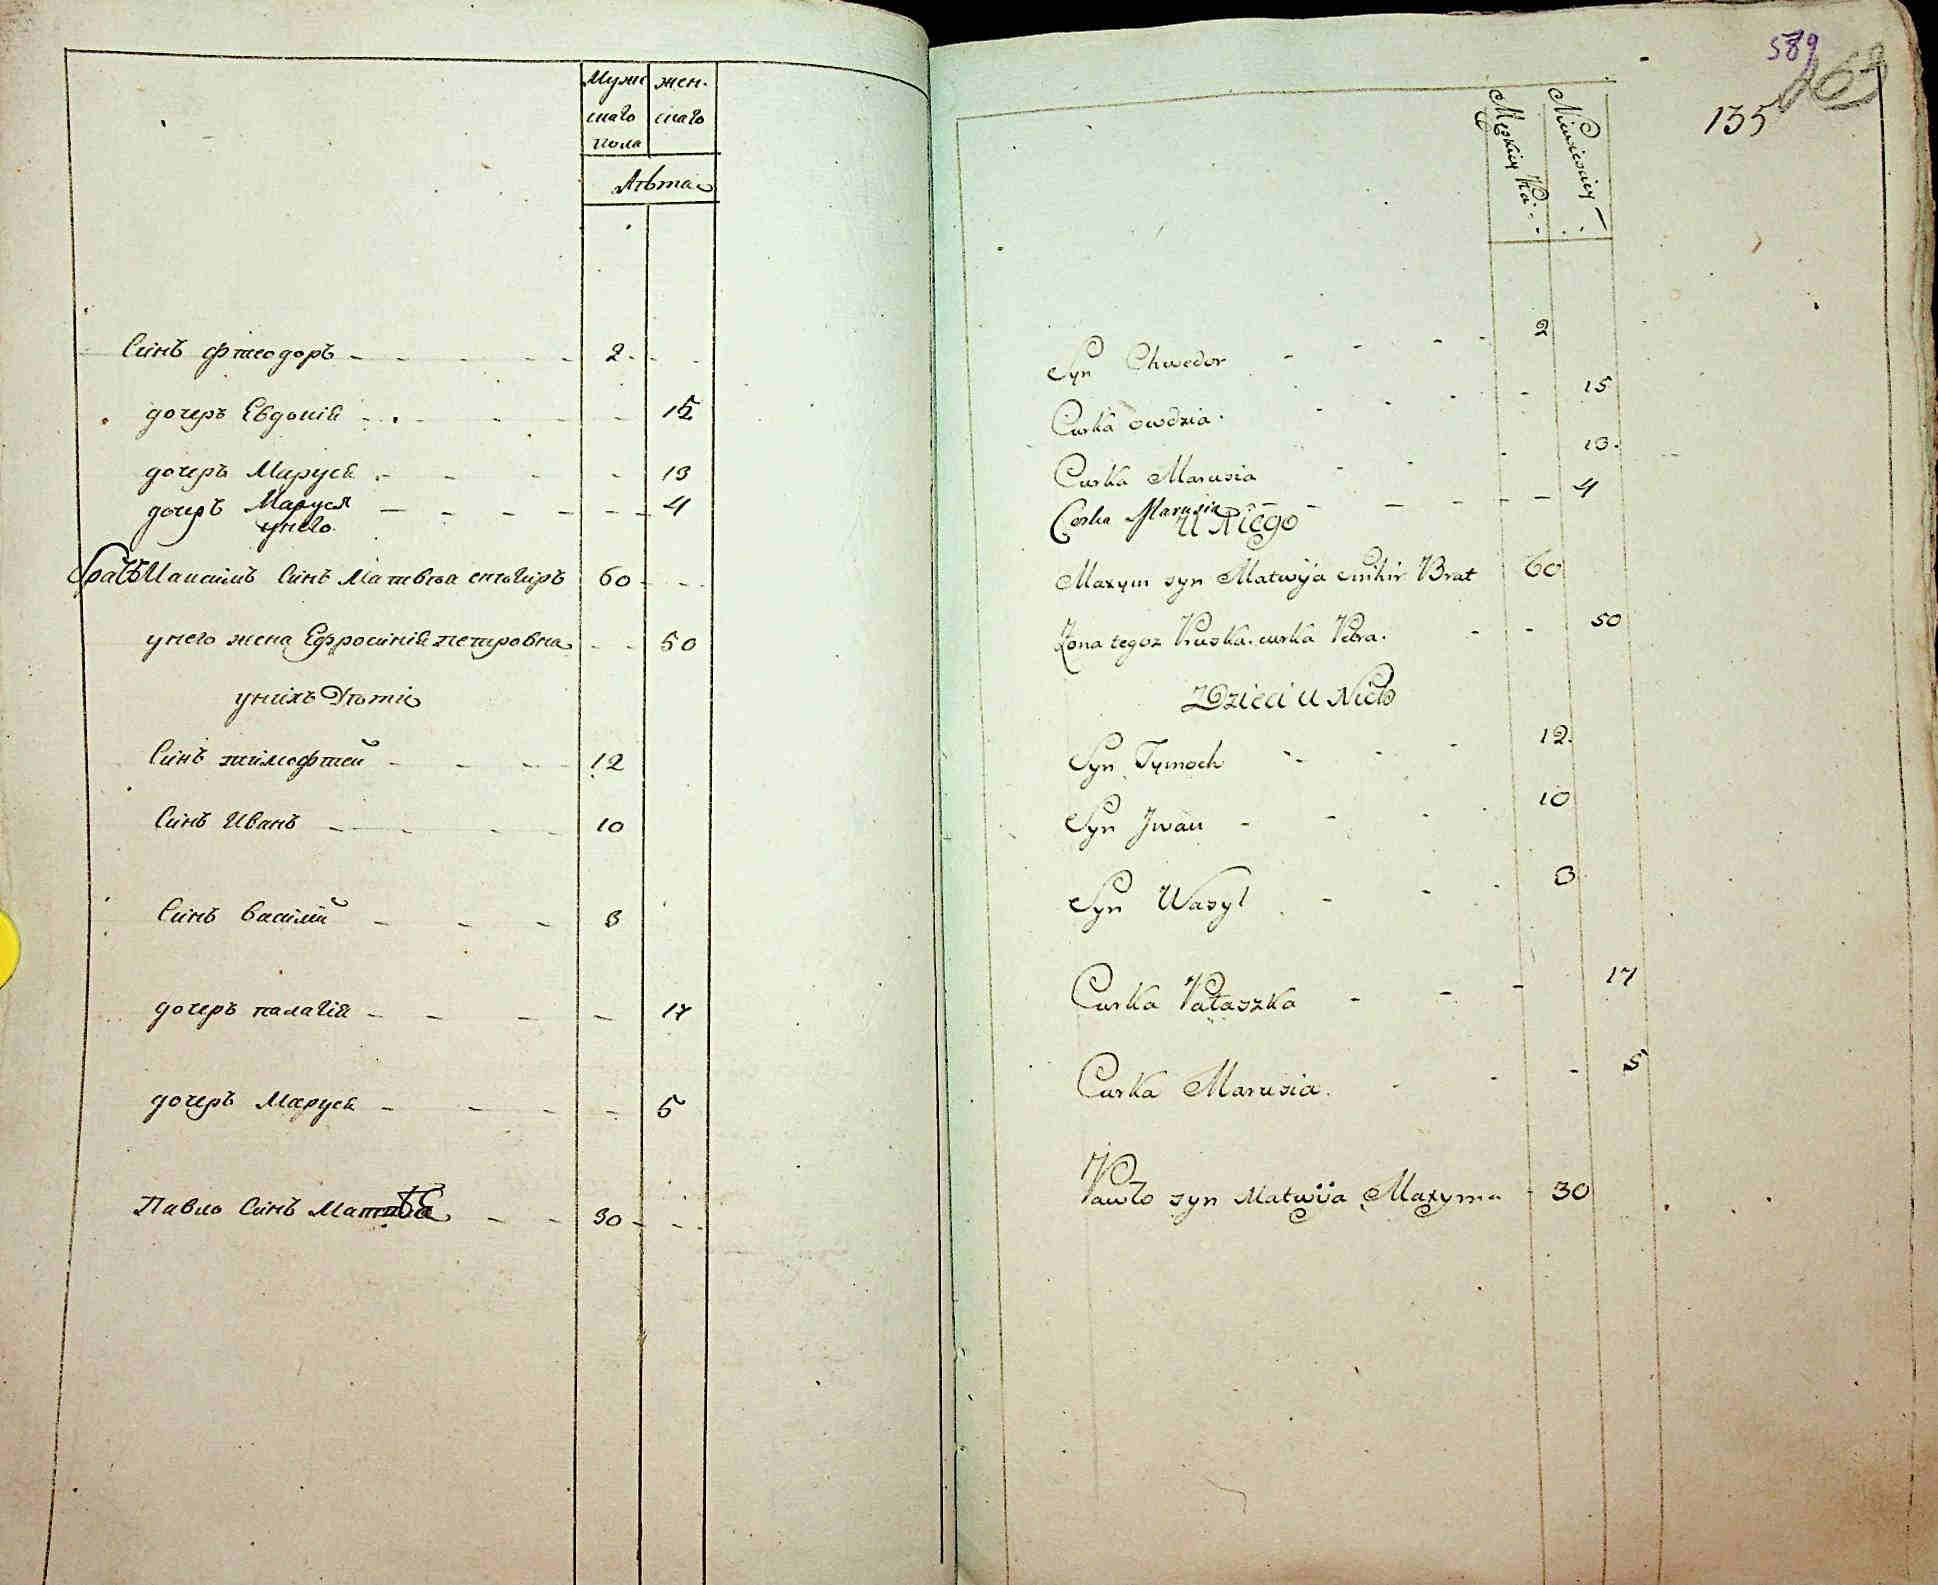 Муже жен.
скаго скаго
пола
Лѣта
Синъ фтеодоръ 2
дочеръ Евдокія 15
дочеръ Маруся 13
дочеръ Маруся 4
унего
братъ Максимъ Синъ Матвѣя снѣгиръ 60
унего жена Ефросинія петровна 50
унихъ Дѣти
Синъ тимофтей 12
Синъ Иванъ 10
Синъ Василій 8
дочеръ палагія 17
дочеръ Маруся 5
Павло Синъ Матвѣя 30
589
135
Syn Chwedor 2
Curka owdzia 15
Curka Marusia 13.
Corka Marusia 4
U Niego
Maxym syn Matwija Snihir Brat 60
Zona tegoz Pruska curka Petra. 50
Dzieci u Nich
Syn Tymoch 12.
Syn Jwan 10
Syn Wasyl 8
Curka Pałaszka 17
Curka Marusia. 5
Pawło syn Matwija Maxyma 30